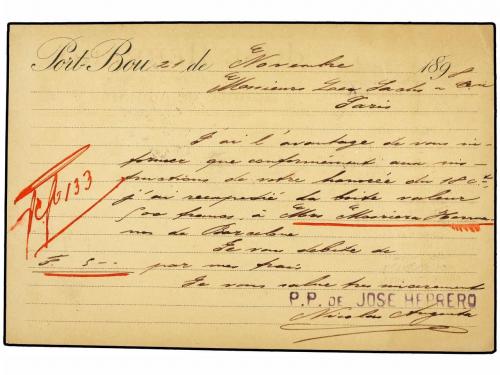 Port-Bou 21 de Novembre 189
Messieurs
Paris
J'ai l'avantage de vous in-
former que conformément aux ins-
tructions de votre honorée du 18 c.te
j'ai reexpedié la boite valeur
500 francs, à Mrs
nos de Barcelone
Je vous debite de
F. 5-- par mes frais
Je vous salue tres sincerement
P.P. DE JOSE HERRERO
Nicolas